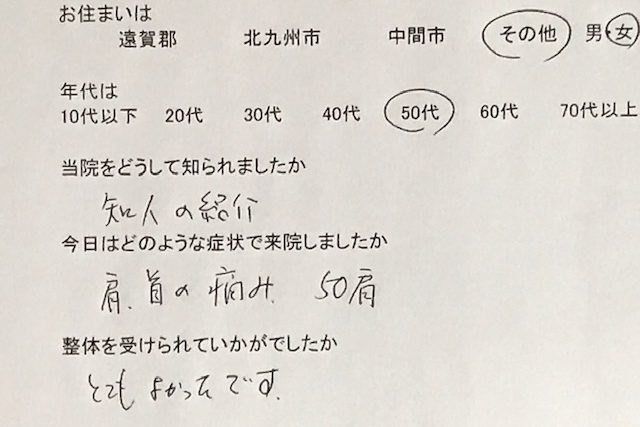 お住まいは
遠賀郡 北九州市 中間市 その他 男・女
年代は
10代以下 20代 30代 40代 50代 60代 70代以上
当院をどうして知られましたか
知人の紹介
今日はどのような症状で来院しましたか
肩、首の痛み、50肩
整体を受けられていかがでしたか
とてもよかったです。